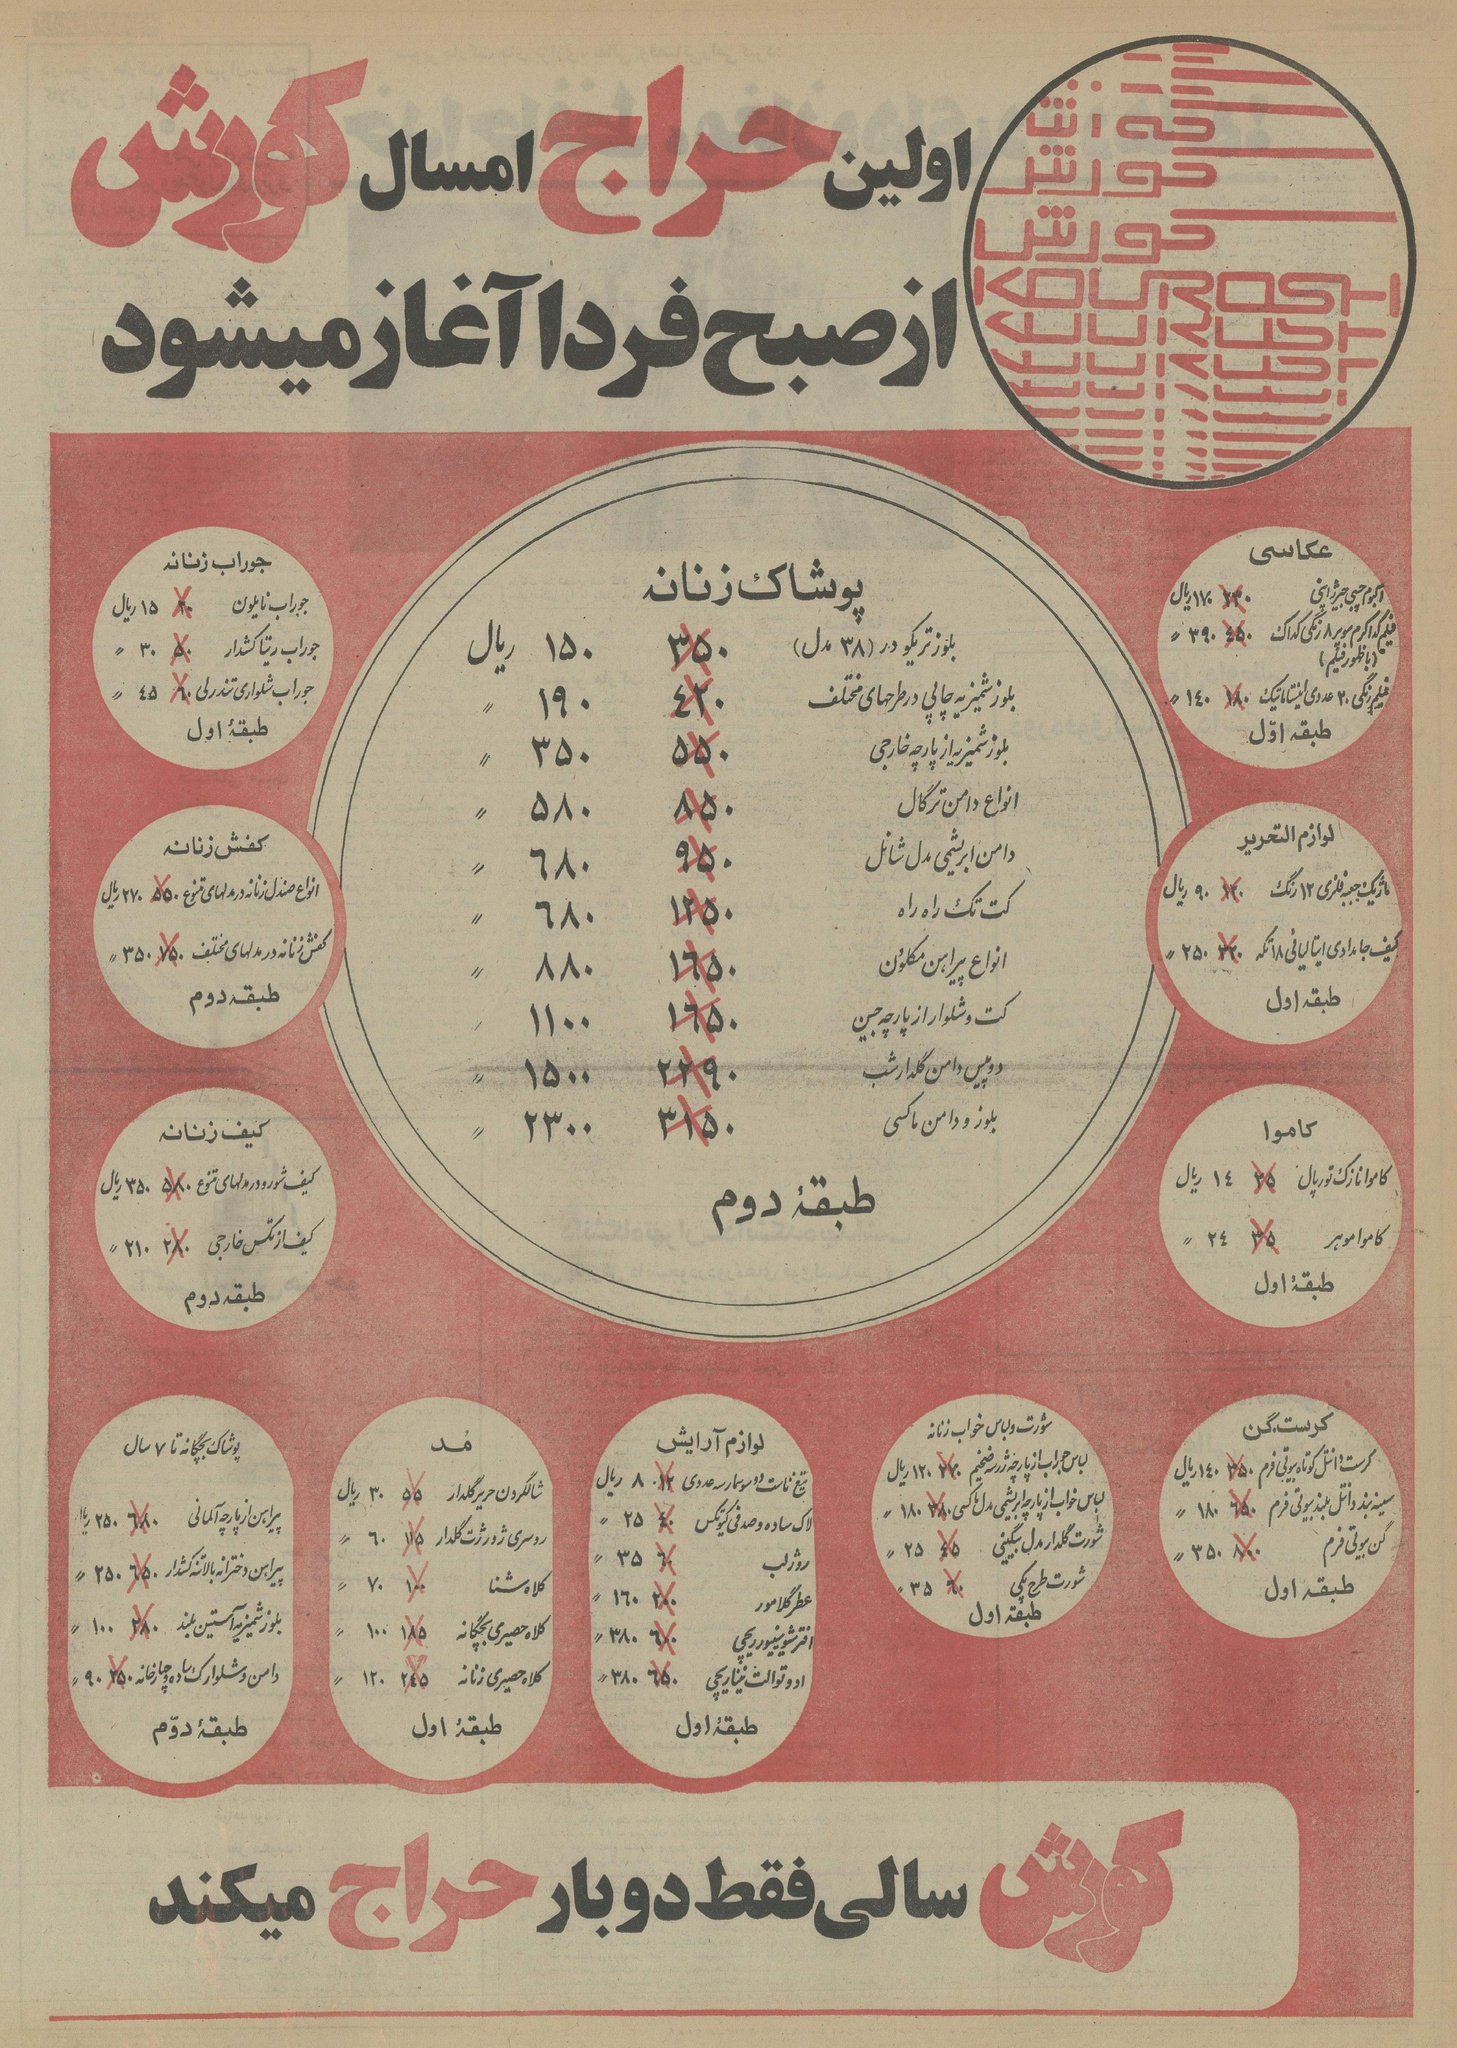 اولین حراج امسال کورش
از صبح فردا آغاز میشود
کورش
کورش
KOUROSH
پوشاک زنانه
بلوز تریکو در (۳۸ مدل) ۳۵۰ ۱۵۰ ریال
بلوز شمیزیه چاپی در طرحهای مختلف ۴۲۰ ۱۹۰ 〃
بلوز شمیزیه از پارچه خارجی ۵۵۰ ۳۵۰ 〃
انواع دامن ترگال ۸۵۰ ۵۸۰ 〃
دامن ابریشمی مدل شانل ۹۵۰ ۶۸۰ 〃
کت تک راه راه ۱۲۵۰ ۶۸۰ 〃
انواع پیراهن مکلون ۱۶۵۰ ۸۸۰ 〃
کت و شلوار از پارچه جین ۱۶۵۰ ۱۱۰۰ 〃
دوپیس دامن گلدار شب ۲۲۹۰ ۱۵۰۰ 〃
بلوز و دامن ماکسی ۳۱۵۰ ۲۳۰۰ 〃
طبقهٔ دوم
عکاسی
آلبوم جیبی جیر ژاپنی ۲۳۰ ۱۷۰ ریال
فیلم کداکرم سوپر ۸ رنگی کداک ۴۵۰ ۳۹۰ 〃
(با ظهور فیلم)
فیلم رنگی ۲۰ عددی اینستاماتیک ۱۸۰ ۱۴۰ 〃
طبقه اوّل
لوازم التحریر
ماژیک جعبه فلزی ۱۲ رنگ ۱۲۰ ۹۰ ریال
کیف جامدادی ایتالیائی ۱۸ تکه ۲۵۰ 〃
طبقه اول
کاموا
کاموا نازک تورپال ۳۵ ۱۴ ریال
کاموا موهر ۳۵ ۲۴ 〃
طبقهٔ اول
جوراب زنانه
جوراب نایلون ۲۰ ۱۵ ریال
جوراب ریتا کشدار ۵۰ ۳۰ 〃
جوراب شلواری تندرلی ۶۰ ۴۵ 〃
طبقهٔ اول
کفش زنانه
انواع صندل زنانه در مدلهای متنوع ۵۵۰ ۲۷۰ ریال
کفش زنانه در مدلهای مختلف ۷۵۰ ۳۵۰ 〃
طبقه دوم
کیف زنانه
کیف شورو در مدلهای متنوع ۵۸۰ ۳۵۰ ریال
کیف از تکس خارجی ۲۸۰ ۲۱۰ 〃
طبقه دوم
کرست.گن
کرست دانتل کوتاه بیوتی فرم ۳۵۰ ۱۴۰ ریال
سینه بند دانتل بلند بیوتی فرم ۶۵۰ ۱۸۰ 〃
گن بیوتی فرم ۸۰۰ ۳۵۰ 〃
طبقه اول
شورت و لباس خواب زنانه
لباس خواب از پارچه ژرسه ضخیم ۲۷۰ ۱۲۰ ریال
لباس خواب از پارچه ابریشمی مدل ماکسی ۳۸۰ ۱۸۰ 〃
شورت گلدار مدل بیکینی ۴۵ ۲۵ 〃
شورت طرح پکی ۶۰ ۳۵ 〃
طبقهٔ اول
لوازم آرایش
تیغ ناست دو سوسمار سه عددی ۱۲ ۸ ریال
لاک ساده و صدفی کیوتکس ۴۰ ۲۵ 〃
روژلب ۶۰ ۳۵ 〃
عطر گلامور ۲۰۰ ۱۶۰ 〃
افترشو سینیور ریچی ۶۰۰ ۳۸۰ 〃
ادو توالت نیناریچی ۶۵۰ ۳۸۰ 〃
طبقهٔ اول
مُد
شالگردن حریر گلدار ۵۵ ۳۰ ریال
روسری ژورژت گلدار ۱۱۵ ۶۰ 〃
کلاه شنا ۱۰۰ ۷۰ 〃
کلاه حصیری بچگانه ۱۸۵ ۱۰۰ 〃
کلاه حصیری زنانه ۲۴۵ ۱۲۰ 〃
طبقهٔ اول
پوشاک بچگانه تا ۷ سال
پیراهن از پارچه آلمانی ۶۸۰ ۲۵۰ ریال
پیراهن دخترانه بالاتنه کشدار ۶۵۰ ۲۵۰ 〃
بلوز شمیزیه آستین بلند ۲۸۰ ۱۰۰ 〃
دامن و شلوارک ساده و چارخانه ۲۵۰ ۹۰ 〃
طبقهٔ دوّم
کورش سالی فقط دوبار حراج میکند